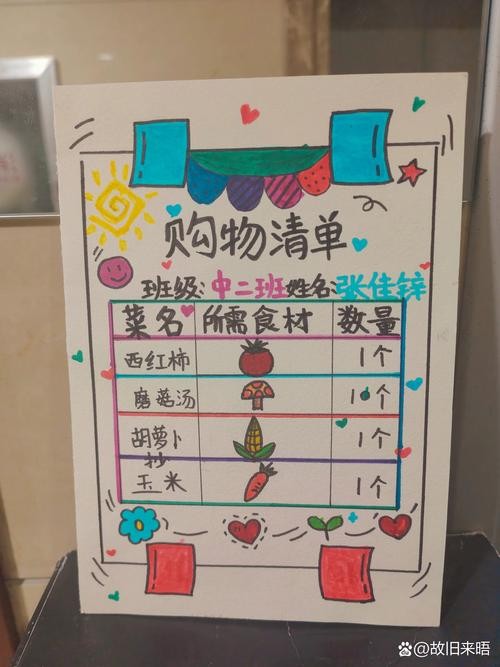 购物清单
班级:中二班姓名:张佳锌
菜名 所需食材 数量
西红柿 1个
蘑菇汤 1个
胡萝卜 1个
炒
玉米 1个
@故旧来晤